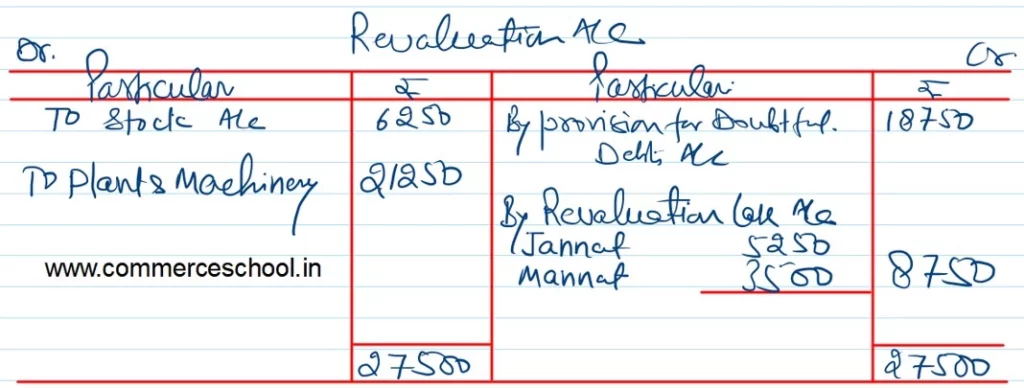 Revaluation A/c
Dr. Cr
Particular ₹ Particular ₹
To Stock A/c 6250 By provision for Doubtful. 18750
Debts A/c
To Plant & Machinery 21250
By Revaluation Loss A/c
Jannat 5250
www.commerceschool.in Mannat 3500 8750
27500 27500